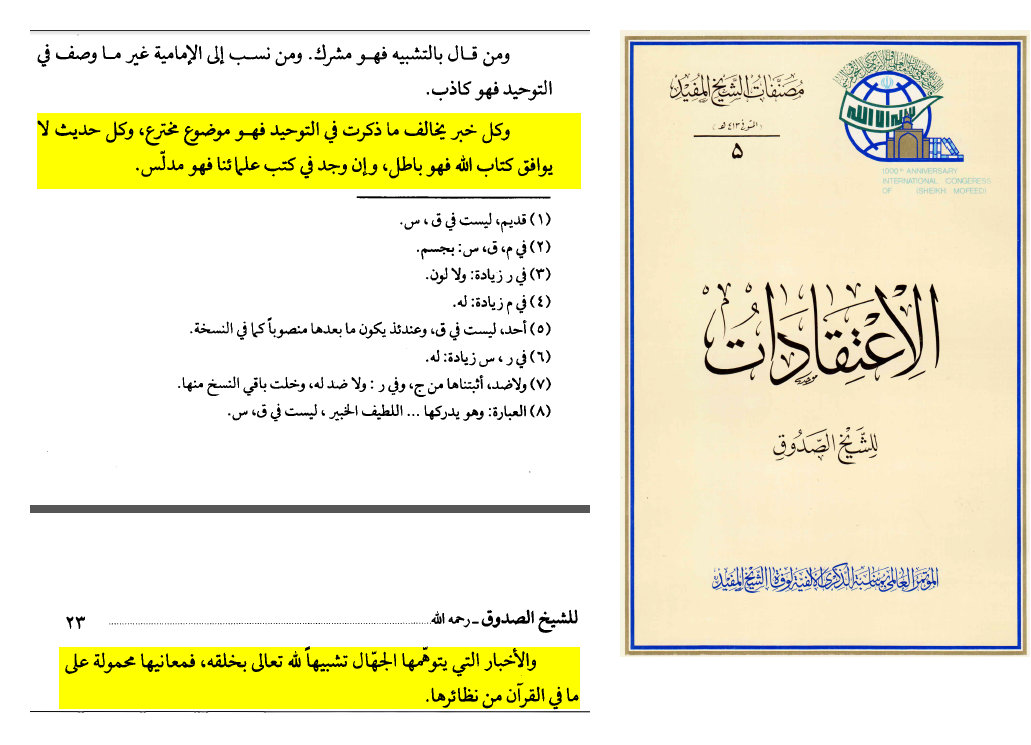 ومن قال بالتشبيه فهو مشرك. ومن نسب إلى الإمامية غير ما وصف في
التوحيد فهو كاذب.
وكل خبر يخالف ما ذكرت في التوحيد فهو موضوع مخترع، وكل حديث لا
يوافق كتاب الله فهو باطل، وإن وجد في كتب علمائنا فهو مدلّس.
(١) قديم، ليست في ق ، س.
(٢) في م، ق، س: بجسم.
(٣) في ر زيادة: ولا لون.
(٤) في م زيادة: له.
(٥) أحد، ليست في ق، وعندئذ يكون ما بعدها منصوباً كما في النسخة.
(٦) في ر ، س زيادة: له.
(٧) ولاضد، أثبتناها من ج، وفي ر : ولا ضد له، وخلت باقي النسخ منها.
(٨) العبارة: وهو يدركها ... اللطيف الخبير ، ليست في ق، س.
للشيخ الصدوق ـ رحمه الله ٢٣
والأخبار التي يتوهّمها الجهّال تشبيهاً لله تعالى بخلقه، فمعانيها محمولة على
ما في القرآن من نظائرها.
مصنفات الشيخ المفيد
(المتوفى ٤١٣ هـ)
٥
لا إله إلا الله
1000th ANNIVERSARY
INTERNATIONAL CONGRESS
OF (SHEIKH MOFEED)
الاِعْتِقَادَاتُ
للشَّيْخِ الصَّدُوقِ
المؤتمر العالمي بمناسبة الذكرى الألفية لوفاة الشيخ المفيد